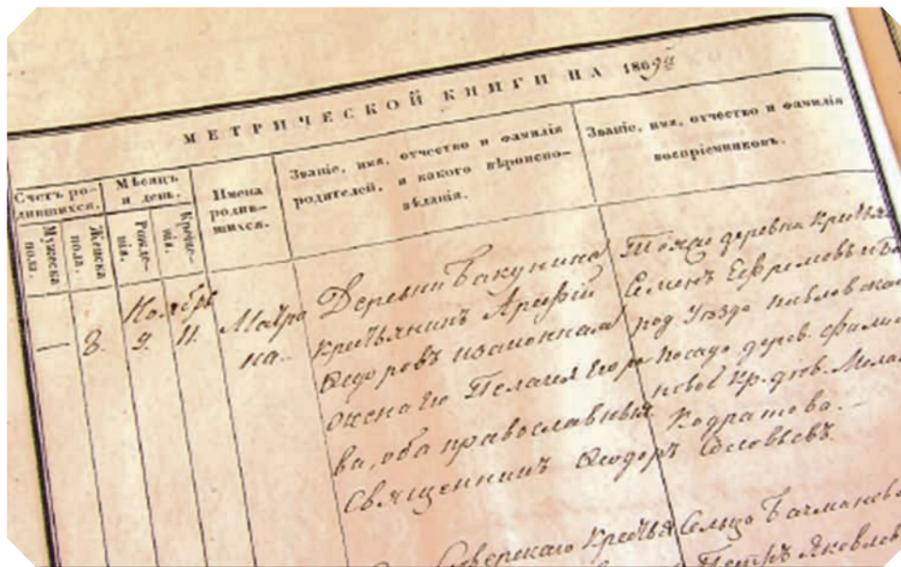 МЕТРИЧЕСКОЙ КНИГИ НА 1869й
Счетъ ро-
дившихся.
Мужеска
пола.
Женска
пола.
Мѣсяцъ
и день.
Рожде-
нія.
Креще-
нія.
Имена
родив-
шихся.
Званіе, имя, отчество и фамилія
родителей, и какого вѣроиспо-
вѣданія.
Званіе, имя, отчество и фамилія
воспріемниковъ.
Ноябрь
— 8. 9. 11.
Матро
на.
Деревни Бакунина
крестьянинъ Арефій
Ѳедоровъ и законная
жена его Пелагея Егоро
ва, оба православные.
Священникъ Ѳеодоръ Соловьевъ
Тойже деревни крестья
Семенъ Ефремовъ и Бо
уѣзда Павловска
Посада дерев.
Кр. дѣв.
Кодратова.
Сельцо
Петръ Яковлев